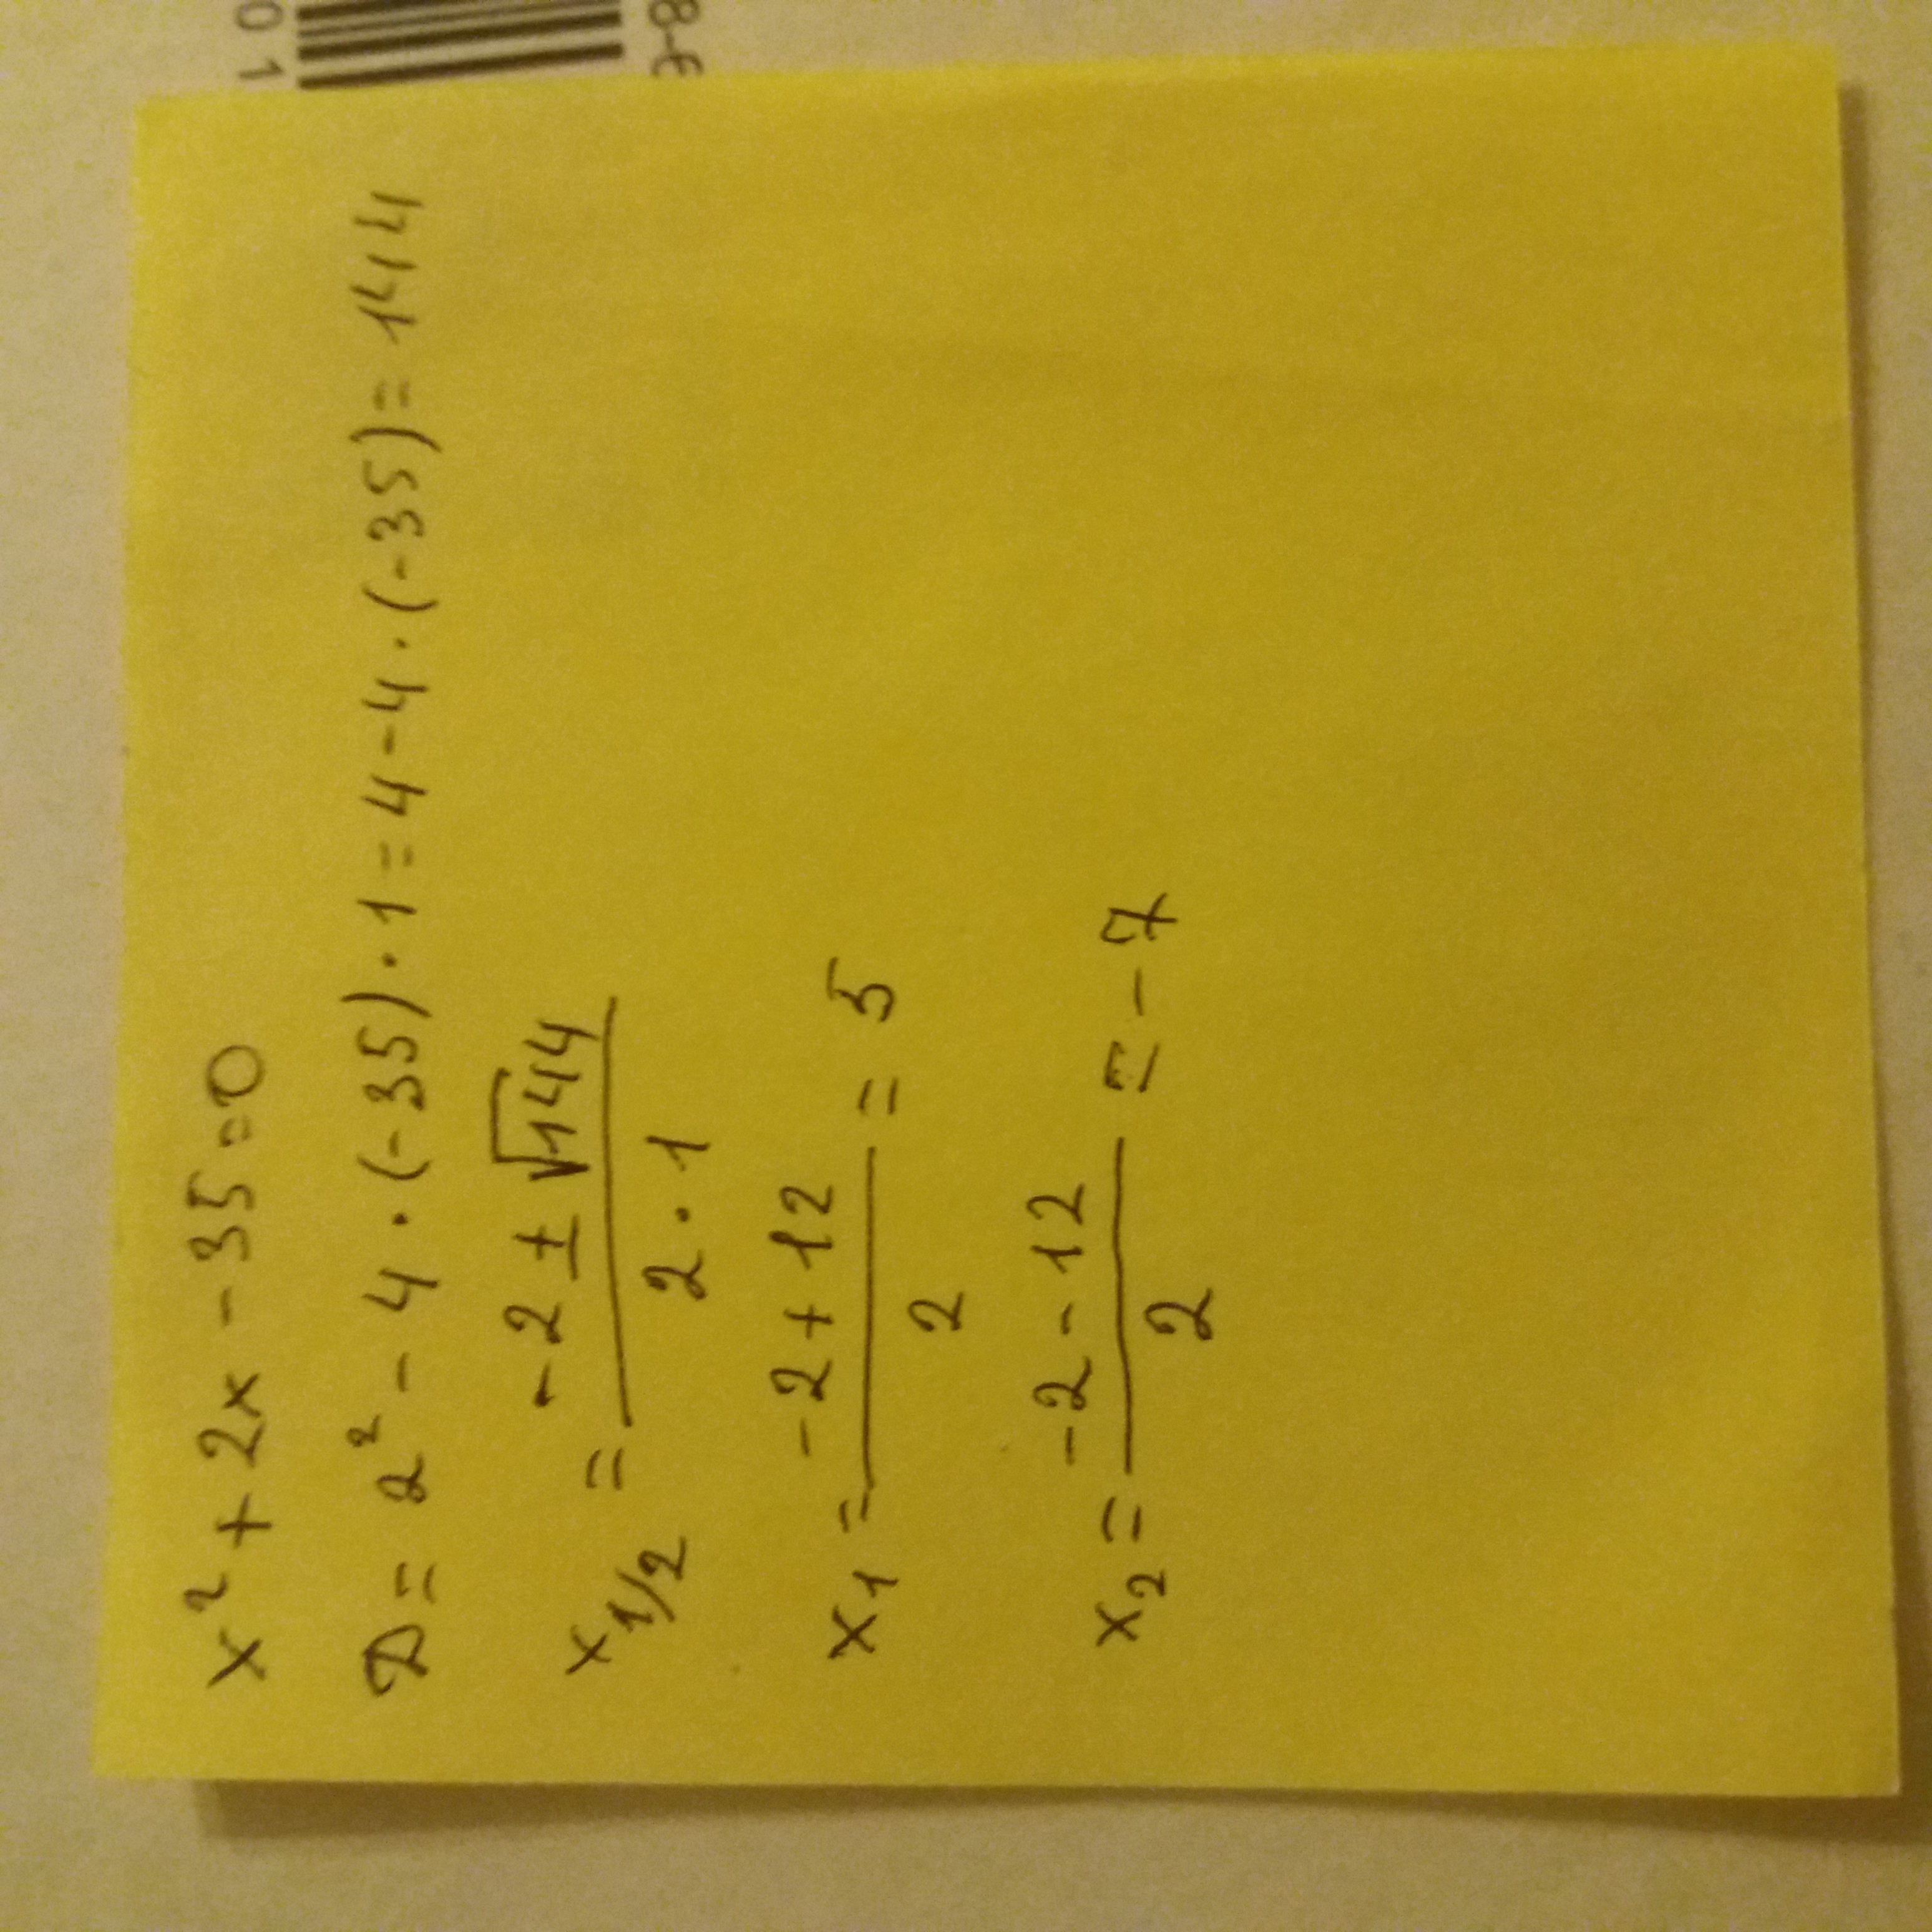 x² + 2x - 35 = 0
D = 2² - 4 · (-35) · 1 = 4 - 4 · (-35) = 144
x1/2 = (-2 ± √144) / (2 · 1)
x₁ = (-2 + 12) / 2 = 5
x₂ = (-2 - 12) / 2 = -7
0 1